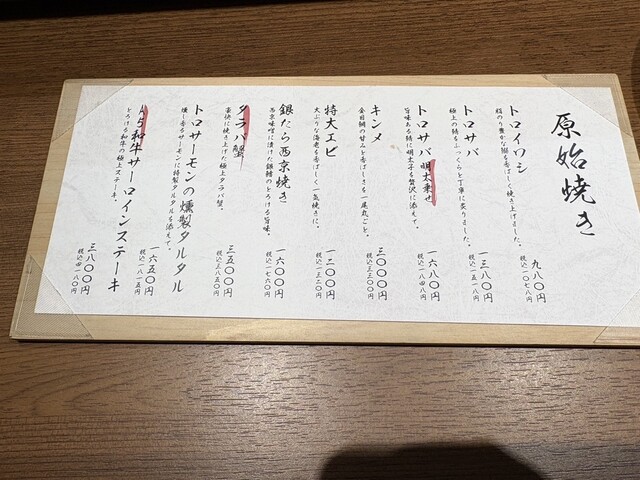 原始焼き
トロイワシ
脂のり豊かな鰯を香ばしく焼き上げました。
九八〇円
税込一〇七八円
トロサバ
極上の鯖をふっくらと丁寧に炙りました。
一三八〇円
トロサバ明太乗せ
旨味ある鯖に明太子を贅沢に添えて。
一六八〇円
税込一八四八円
キンメ
金目鯛の甘みと香ばしさを一尾丸ごと。
三〇〇〇円
税込三三〇〇円
特大エビ
大ぶりな海老を香ばしく一気焼きに。
一二〇〇円
税込一三二〇円
銀だら西京焼き
西京味噌に漬けた銀鱈のとろける旨味。
一六〇〇円
税込一七六〇円
タラバ蟹
豪快に焼き上げた極上タラバ蟹。
三五〇〇円
税込三八五〇円
トロサーモンの燻製タルタル
燻し香るサーモンに特製タルタルを添えて。
一六五〇円
税込一八一五円
A5和牛サーロインステーキ
とろける和牛の極上ステーキ。
三八〇〇円
税込四一八〇円